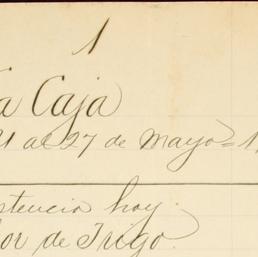 1
a Caja
21 al 27 de Mayo = 1
stencia hoy.
or de Trigo.